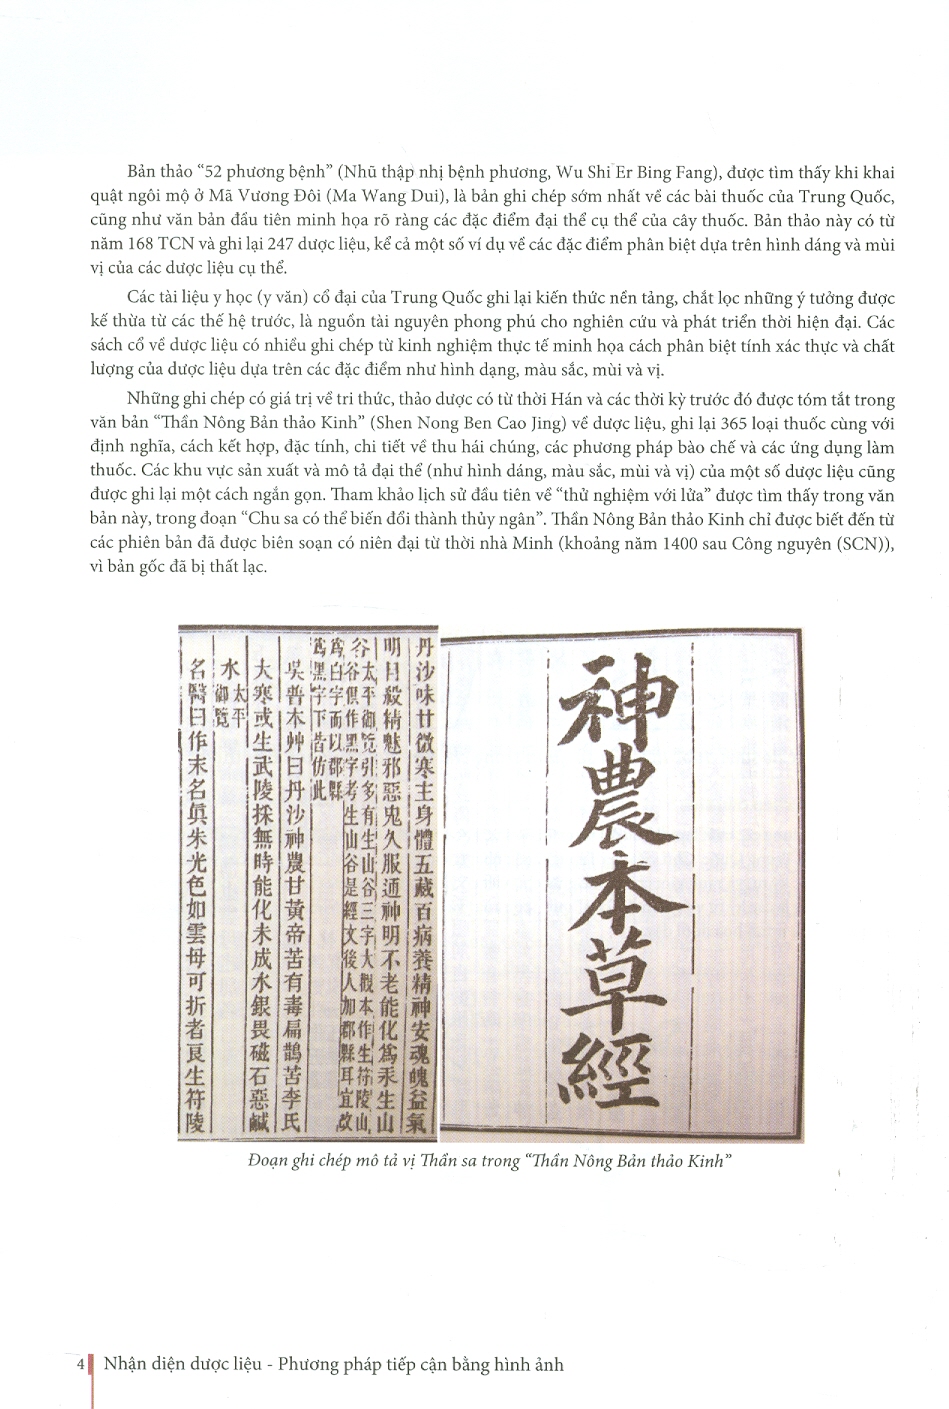 Bản thảo “52 phương bệnh” (Nhũ thập nhị bệnh phương, Wu Shi Er Bing Fang), được tìm thấy khi khai
quật ngôi mộ ở Mã Vương Đôi (Ma Wang Dui), là bản ghi chép sớm nhất về các bài thuốc của Trung Quốc,
cũng như văn bản đầu tiên minh họa rõ ràng các đặc điểm đại thể cụ thể của cây thuốc. Bản thảo này có từ
năm 168 TCN và ghi lại 247 dược liệu, kể cả một số ví dụ về các đặc điểm phân biệt dựa trên hình dáng và mùi
vị của các dược liệu cụ thể.
Các tài liệu y học (y văn) cổ đại của Trung Quốc ghi lại kiến thức nền tảng, chắt lọc những ý tưởng được
kế thừa từ các thế hệ trước, là nguồn tài nguyên phong phú cho nghiên cứu và phát triển thời hiện đại. Các
sách cổ về dược liệu có nhiều ghi chép từ kinh nghiệm thực tế minh họa cách phân biệt tính xác thực và chất
lượng của dược liệu dựa trên các đặc điểm như hình dạng, màu sắc, mùi và vị.
Những ghi chép có giá trị về tri thức, thảo dược có từ thời Hán và các thời kỳ trước đó được tóm tắt trong
văn bản “Thần Nông Bản thảo Kinh” (Shen Nong Ben Cao Jing) về dược liệu, ghi lại 365 loại thuốc cùng với
định nghĩa, cách kết hợp, đặc tính, chi tiết về thu hái chúng, các phương pháp bào chế và các ứng dụng làm
thuốc. Các khu vực sản xuất và mô tả đại thể (như hình dáng, màu sắc, mùi và vị) của một số dược liệu cũng
được ghi lại một cách ngắn gọn. Tham khảo lịch sử đầu tiên về “thử nghiệm với lửa” được tìm thấy trong văn
bản này, trong đoạn “Chu sa có thể biến đổi thành thủy ngân”. Thần Nông Bản thảo Kinh chỉ được biết đến từ
các phiên bản đã được biên soạn có niên đại từ thời nhà Minh (khoảng năm 1400 sau Công nguyên (SCN)),
vì bản gốc đã bị thất lạc.
神農本草經
丹沙味甘微寒主身體五藏百病養精神安魂魄益氣
明目殺精魅邪惡鬼久服通神明不老能化為汞生山
谷太平御覽引多有生山谷三字大觀本作生符陵山
谷俱作黑字考生山谷是經文後人加郡縣耳宜改
為白字而以郡縣
為黑字下皆仿此
吳普本艸曰丹沙神農甘黃帝苦有毒扁鵲苦李氏
大寒或生武陵採無時能化未成水銀畏磁石惡鹹
水太平
御覽
名醫曰作末名真朱光色如雲母可折者良生符陵
Đoạn ghi chép mô tả vị Thần sa trong “Thần Nông Bản thảo Kinh”
4 Nhận diện dược liệu - Phương pháp tiếp cận bằng hình ảnh